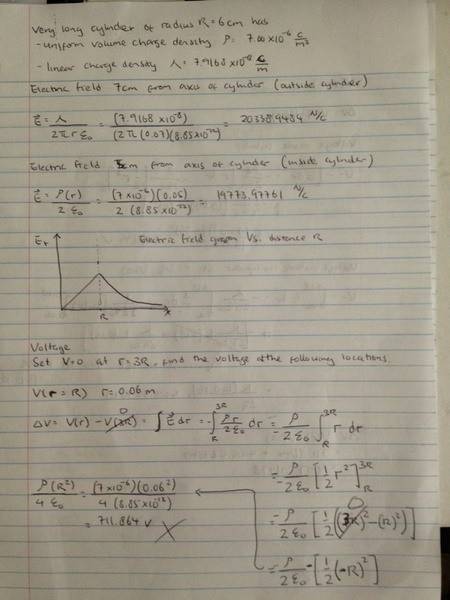 Very long cylinder of radius R = 6 cm has
- uniform volume charge density ρ = 7.00 x10⁻⁶ C/m³
- linear charge density λ = 7.9168 x10⁻⁸ C/m
Electric field 7cm from axis of cylinder (outside cylinder)
E⃗ = λ / 2π r ε₀ = (7.9168 x10⁻⁸) / (2π (0.07)(8.85x10⁻¹²)) = 20338.9484 N/C
Electric field 5cm from axis of cylinder (inside cylinder)
E⃗ = ρ(r) / 2 ε₀ = (7 x10⁻⁶)(0.05) / 2 (8.85 x10⁻¹²) = 19773.97761 N/C
Eᵣ Electric field graph Vs. distance R
R x
Voltage
Set V=0 at r=3R, find the voltage at the following locations
V(r = R) r = 0.06 m
ΔV = V(r) - V(3R) 0 = ∫ E⃗ dr = -∫ R 3R ρr / 2ε₀ dr = ρ / -2 ε₀ ∫ R 3R r dr
= ρ / -2 ε₀ [½ r²] 3R R
= -ρ / 2 ε₀ [½ ((3R)² 0 - (R)²)]
= ρ / 2 ε₀ - [½ (-R)²]
ρ(R²) / 4 ε₀ = (7x10⁻⁶)(0.06²) / 4 (8.85x10⁻¹²)
= 711.864 V X